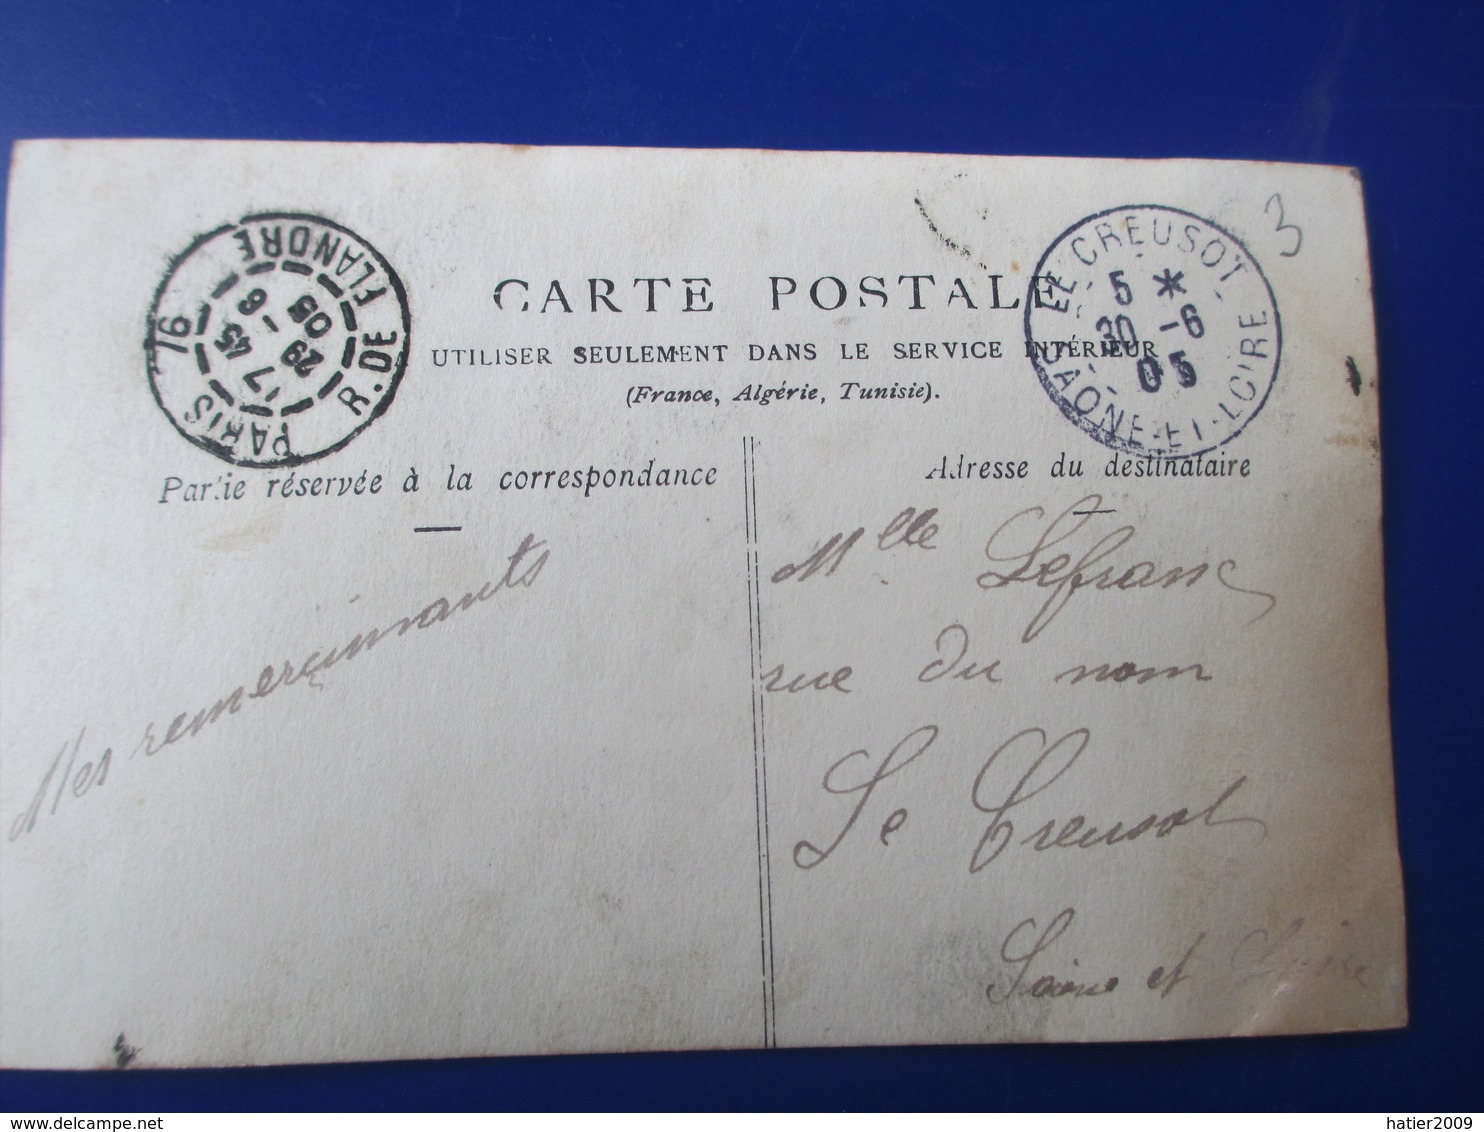 PARIS 76 R. DE FLANDRE
17 45
29 - 6
05
LE CREUSOT
5 *
30 - 6
05
SAONE-ET-LOIRE
3
CARTE POSTALE
UTILISER SEULEMENT DANS LE SERVICE INTÉRIEUR
(France, Algérie, Tunisie).
Partie réservée à la correspondance
Mes remerçimants
Adresse du destinataire
Mlle Lefranc
rue du nom
Le Creusot
Saône et Loire
hatier2009